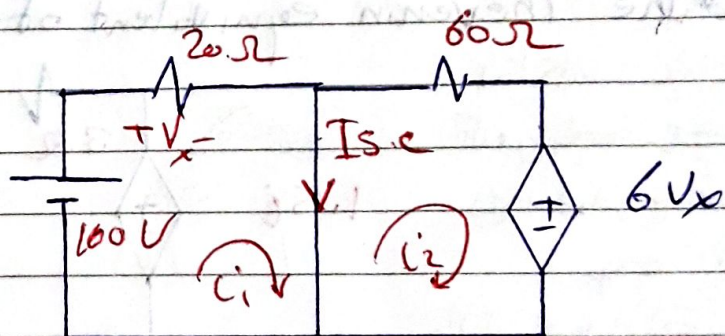 20Ω 60Ω
+Vx- Is.c
100V i1 i2 + - 6Vx